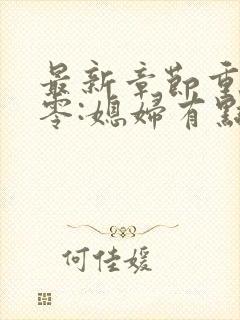 最新章節重
零:媳婦有點
何佳媛